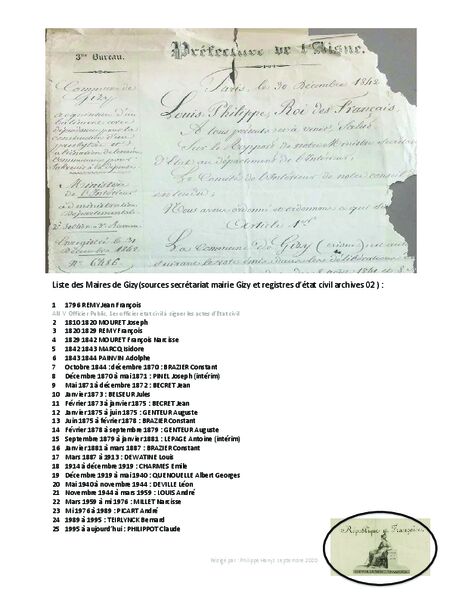 3me Bureau.
Préfecture de l'Aisne.
Paris, le 30 Décembre 1842
Commune de
Gizy
Louis Philippe, Roi des Français,
acquisition d'un
A tous présents et à venir, Salut.
Sur le Rapport de notre Ministre
d'Etat au département de l'Intérieur;
Le Comité de l'Intérieur de notre conseil
entendu,
Ministère
de l'Intérieur
Nous avons ordonné et ordonnons ce qui suit
administration
départementale
Article 1er
Enregistré le 31
décembre 1842
La Commune de Gizy (Aisne)
No 6486
Liste des Maires de Gizy(sources secrétariat mairie Gizy et registres d'état civil archives 02 ) :
1 1796 REMY Jean François
AN V Officier Public, Les officiers état civil à signer les actes d'Etat civil
2 1810 1820 MOURET Joseph
3 1820 1829 REMY François
4 1829 1842 MOURET François Narcisse
5 1842 1843 MARCQ Isidore
6 1843 1844 PAINVIN Adolphe
7 Octobre 1844 : décembre 1870 : BRAZIER Constant
8 Décembre 1870 à mai 1871 : PINEL Joseph (intérim)
9 Mai 1871 à décembre 1872 : BECRET Jean
10 Janvier 1873 : BELSEUR Jules
11 Février 1873 à janvier 1875 : BECRET Jean
12 Janvier 1875 à juin 1875 : GENTEUR Auguste
13 Juin 1875 à février 1878 : BRAZIER Constant
14 Février 1878 à septembre 1879 : GENTEUR Auguste
15 Septembre 1879 à janvier 1881 : LEPAGE Antoine (intérim)
16 Janvier 1881 à mars 1887 : BRAZIER Constant
17 Mars 1887 à 1913 : DEWATINE Louis
18 1914 à décembre 1919 : CHARMES Emile
19 Décembre 1919 à mai 1940 : QUENOUELLE Albert Georges
20 Mai 1940 à novembre 1944 : DEVILLE Léon
21 Novembre 1944 à mars 1959 : LOUIS André
22 Mars 1959 à mi 1976 : MILLET Narcisse
23 Mi 1976 à 1989 : PICART André
24 1989 à 1995 : TEIRLYNCK Bernard
25 1995 à aujourd'hui : PHILIPPOT Claude
Rédigé par : Philippe Henyz septembre 2020
République Française